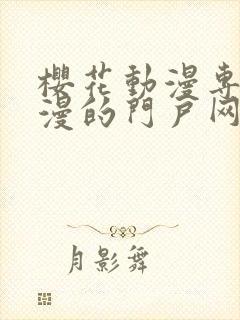 櫻花動漫專
漫的門戶网
月影舞